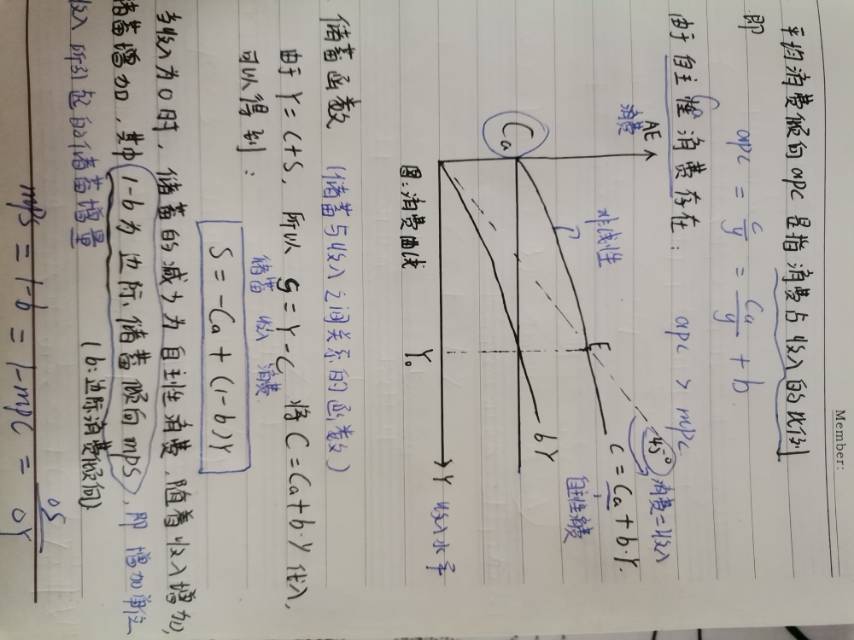 Member:
平均消费倾向 apc 是指消费占收入的比例
即 apc = c/y = Ca/y + b
由于自主性消费存在: apc > mpc
Ca
AE
消费
Ca
非线性
E
45°
消费=收入
C = Ca + b·Y
自主性消费
bY
Y₀
Y 收入水平
图:消费曲线
储蓄函数 (储蓄与收入之间关系的函数)
由于 Y = C+S, 所以 S = Y-C 将 C = Ca+b·Y 代入,
储蓄 收入 消费
可以得到:
S = -Ca + (1-b)Y
当收入为0时, 储蓄的减少为自主性消费, 随着收入增加,
储蓄增加, 其中 1-b 为边际储蓄倾向 mps, 即 增加单位
收入所引起的储蓄增量
(b:边际消费倾向)
mps = 1-b = 1-mpc = ∂S/∂Y